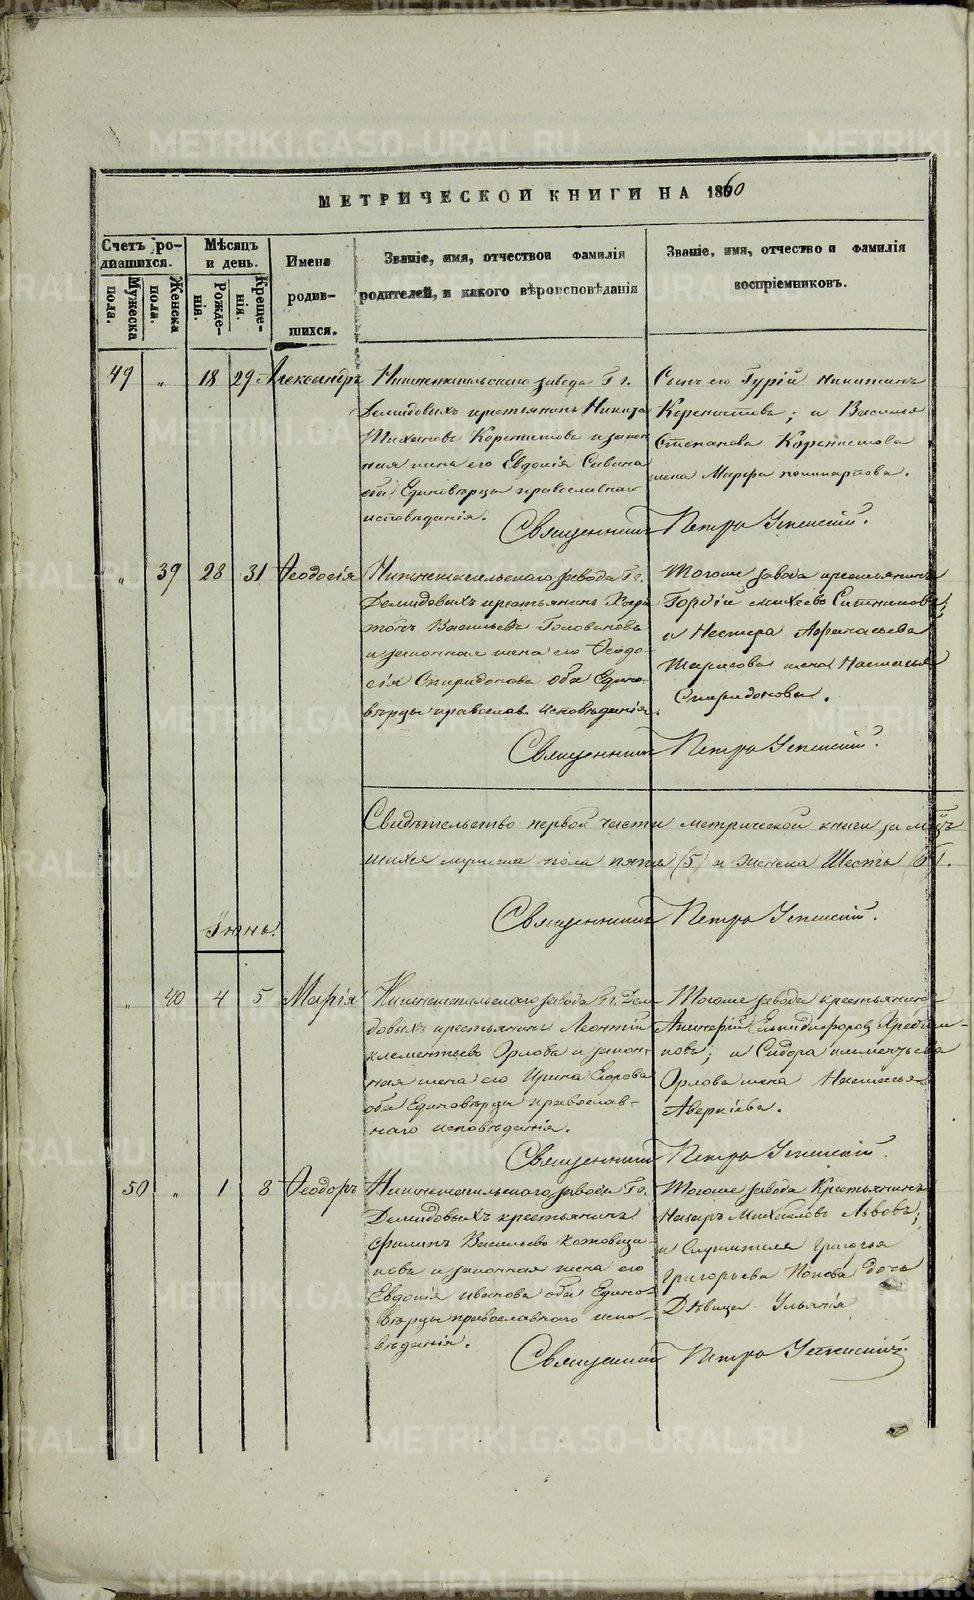 МЕТРИЧЕСКОЙ КНИГИ НА 1860
Счетъ ро-
дившихся.
Мужеска
пола.
Женска
пола.
Мѣсяцъ
и день.
Рожде-
нія.
Креще-
нія.
Имена
родив-
шихся.
Званіе, имя, отчествои фамилія
родителей, и какого вѣроисповѣданія
Званіе, имя, отчество и фамилія
воспріемниковъ.
49 " 18 29 Александръ
Нижнетагильскаго завода Гг.
Демидовыхъ крестьянинъ Никита
Тихановъ и закон
ная жена его Евдокія Савина
оба Единовѣрцы православнаго
исповѣданія.
Сынъ его Гурій Никитинъ
и Василья
Степанова
жена Марѳа
Священникъ Петръ Успенскій.
" 39 28 31 Ѳеодосія
Нижнетагильскаго завода Гг.
Демидовыхъ крестьянинъ Хари
тонъ Васильевъ Головановъ
и законная жена его Ѳеодо
сія Спиридонова оба Едино
вѣрцы православ. исповѣданія.
Тогоже завода крестьянинъ
Гордій Михеевъ Ситниковъ;
и Нестера Афанасьева
Тарасова жена Настасья
Спиридонова.
Священникъ Петръ Успенскій.
Свидѣтельство первой части метрической книги за мцъ
шихся мужеска пола пять (5) и женска Шесть (6).
Священникъ Петръ Успенскій.
Іюнь.
" 40 4 5 Марія
Нижнетагильскаго завода Гг. Деми
довыхъ крестьянинъ Леонтій
Клементьевъ Орловъ и закон-
ная жена его Ирина Егорова
оба Единовѣрцы православ-
наго исповѣданія.
Тогоже завода крестьянинъ
и Сидора Клементьева
Орлова жена Настасья
Аверкіева.
Священникъ Петръ Успенскій.
50 " 1 8 Ѳеодоръ
Нижнетагильскаго завода Гг.
Демидовыхъ крестьянинъ
Филипъ Васильевъ
и законная жена его
Евдокія Иванова оба Едино-
вѣрцы православнаго испо-
вѣданія.
Тогоже завода Крестьянинъ
Назаръ Михайловъ Львовъ;
и Служителя Григорья
Григорьева Попова дочь
Дѣвица Ульянія
Священникъ Петръ Успенскій
METRIKI.GASO-URAL.RU